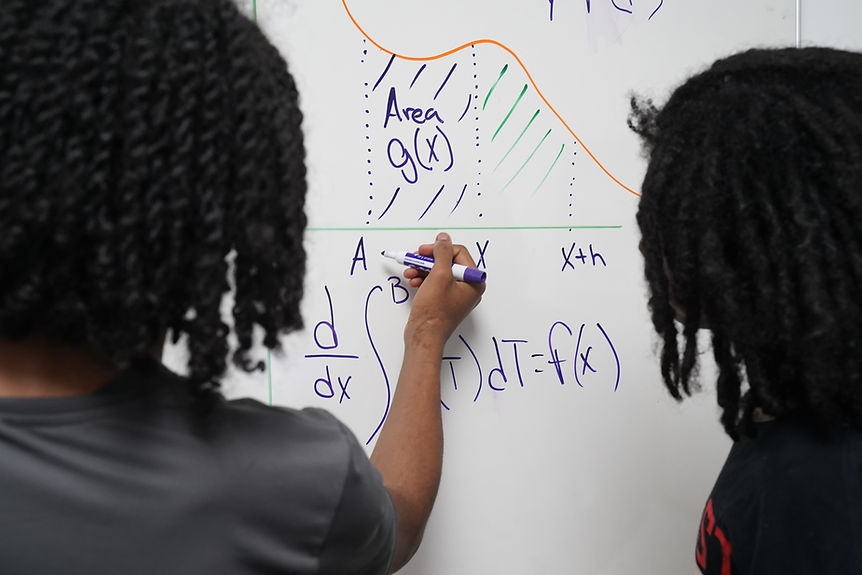 Area
g(x)
A x x+h
d/dx ∫ B (T) dT = f(x)